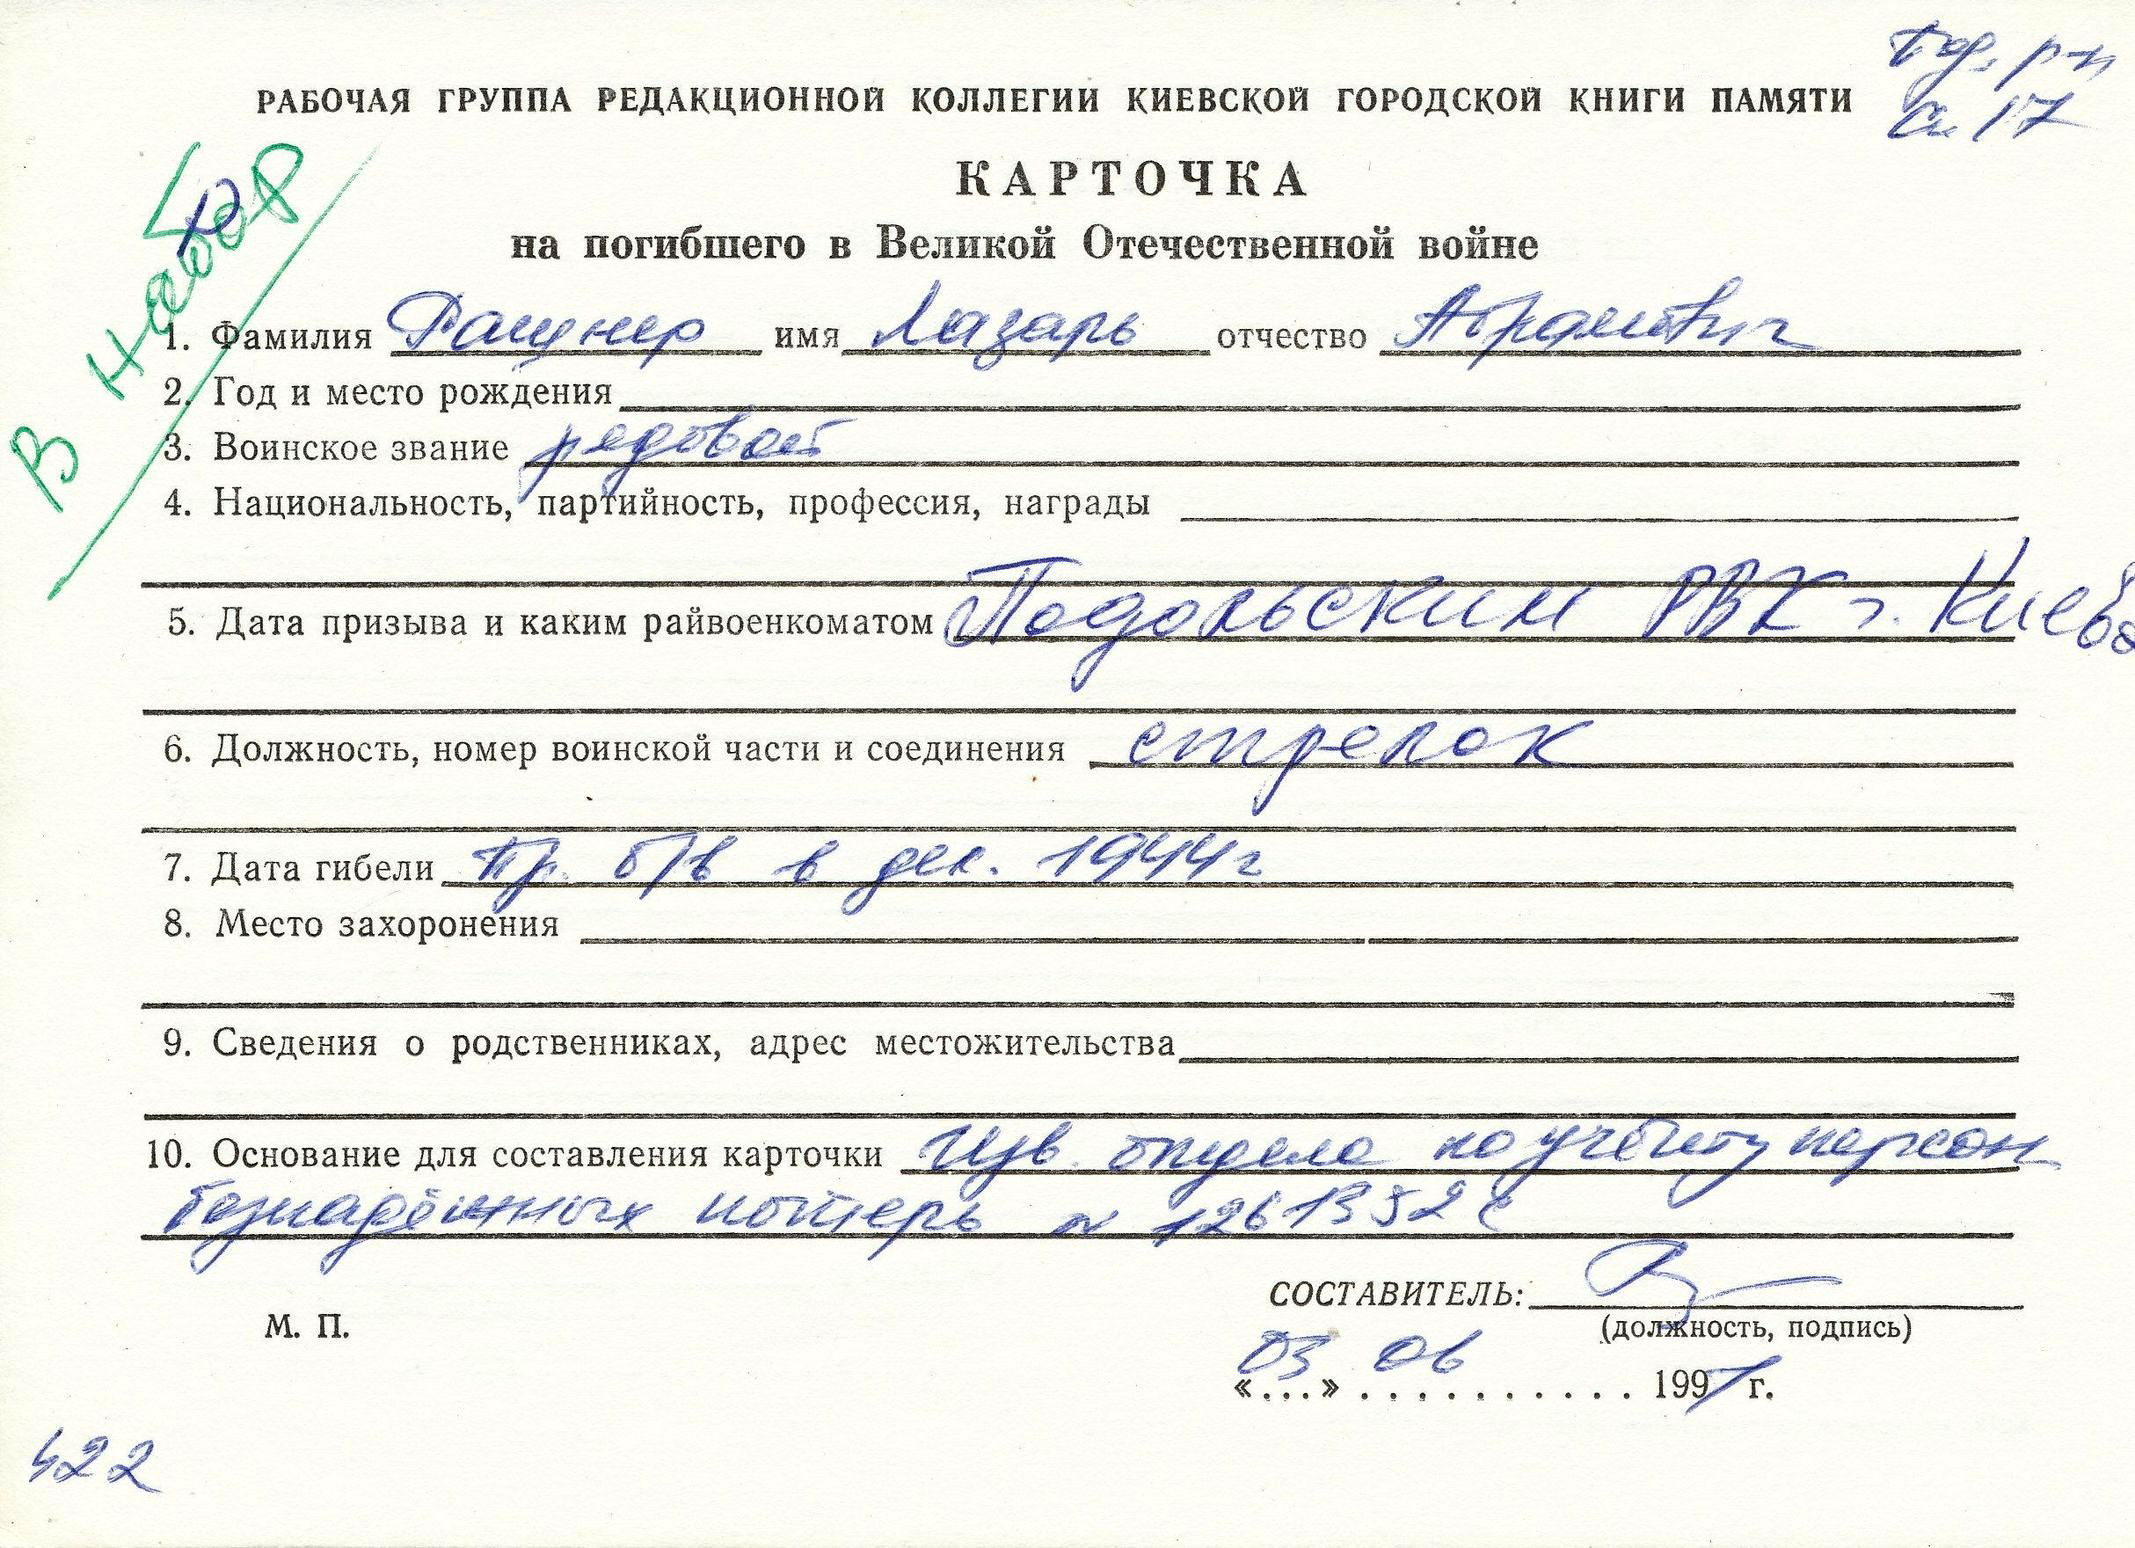 Под. р-н
РАБОЧАЯ ГРУППА РЕДАКЦИОННОЙ КОЛЛЕГИИ КИЕВСКОЙ ГОРОДСКОЙ КНИГИ ПАМЯТИ
17
КАРТОЧКА
на погибшего в Великой Отечественной войне
В набор
1. Фамилия Ращнер имя Лазарь отчество Абрамович
2. Год и место рождения
3. Воинское звание рядовой
4. Национальность, партийность, профессия, награды
5. Дата призыва и каким райвоенкоматом Подольским РВК г. Киева
6. Должность, номер воинской части и соединения стрелок
7. Дата гибели Пр. б/в в дек. 1944г
8. Место захоронения
9. Сведения о родственниках, адрес местожительства
10. Основание для составления карточки Изв. отдела по учёту персон
безнадёжных потерь
СОСТАВИТЕЛЬ:
М. П.
(должность, подпись)
03 06
«...» . . . . . . . . . . . 1991 г.
422